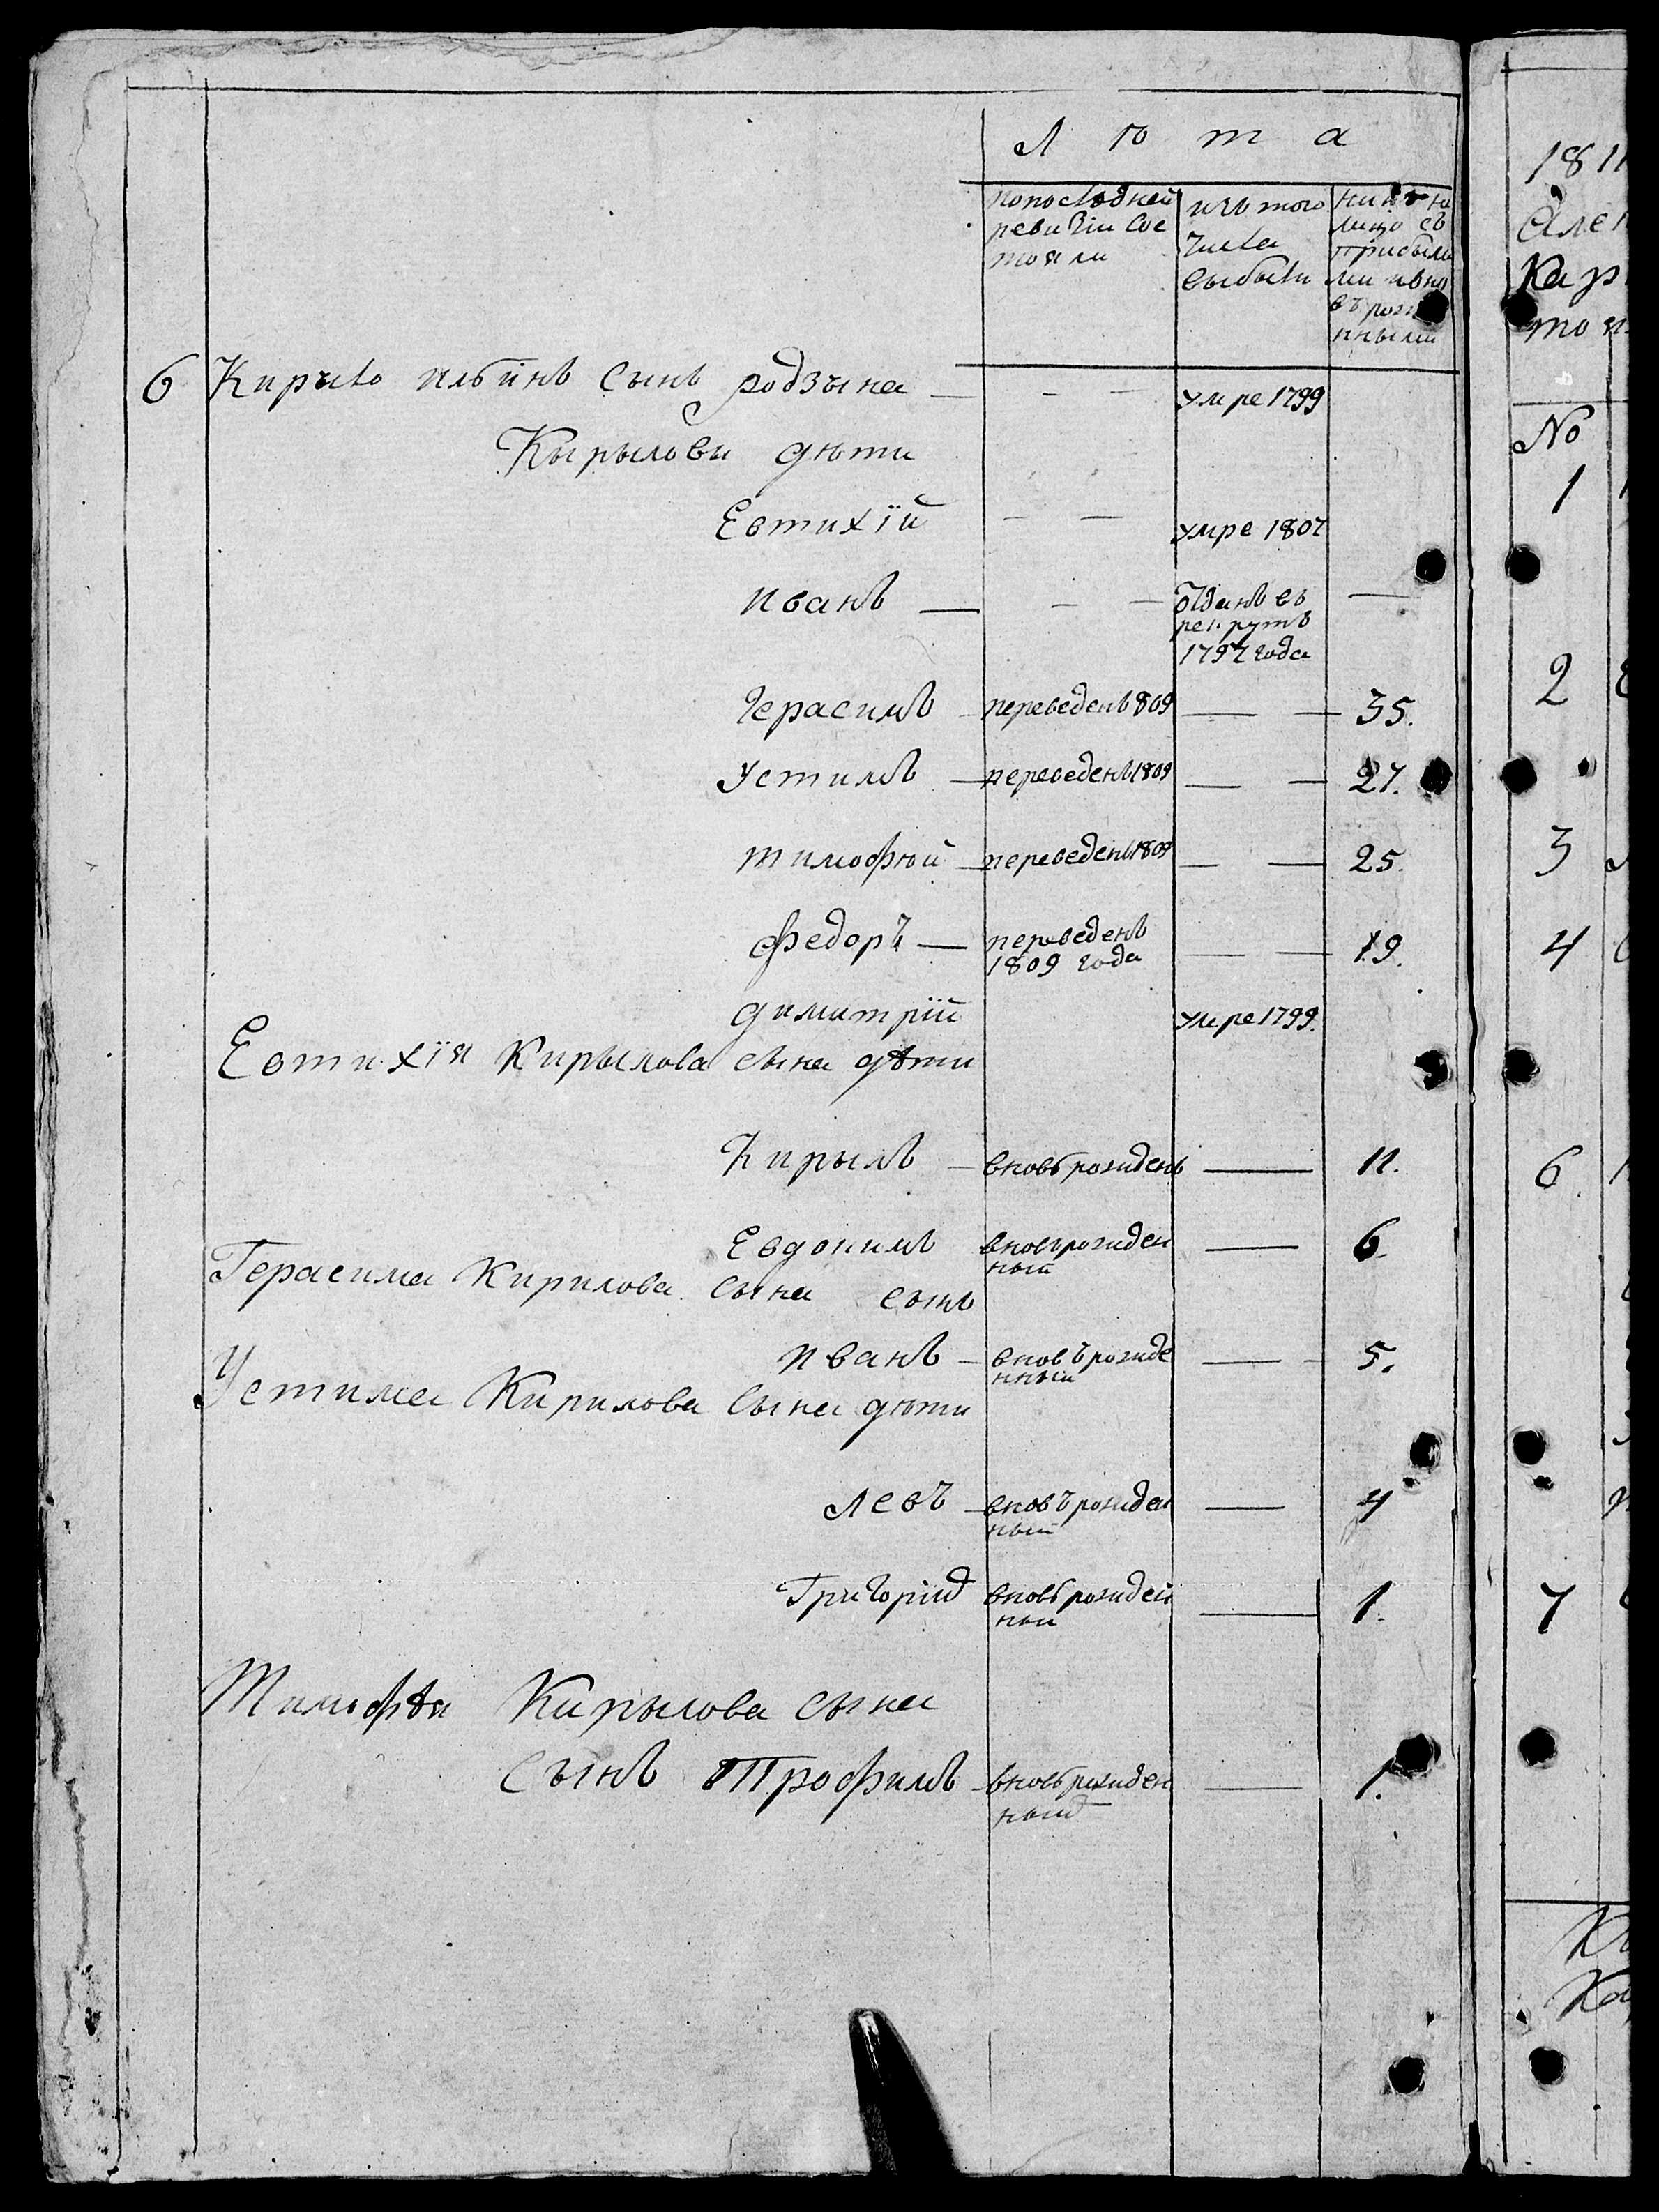 Лѣта
попослѣдней ревизіи состояли
изъ того числа выбыли
нинѣ на лицо съ прибылими ивновърожденными
6 Кирыло Ильинъ Сынъ родзына — умре 1799
Кырылови дѣти
Евтихїй — умре 1807
Иванъ — отданъ въ рекрутъ 1797 года —
Герасимъ переведенъ 809 — 35.
Устимъ — переведенъ 1809 — 27.
Тимофѣй — переведенъ 1809 — 25.
Федоръ — переведенъ 1809 года — 19.
Димитрїй умре 1799.
Евтихїя Кирылова сына дѣти
Кирылъ — вновърожденъ — 11.
Евдокимъ вновърожденный — 6.
Герасима Кирилова сына сынъ
Иванъ — вновърожденный — 5.
Устима Кирилова сына дѣти
Левъ — вновърожденный — 4
Григорій вновърожденный — 1.
Тимофѣя Кирылова сына
сынъ Трофимъ — вновърожденный — 1.
1811
Кар
тоя
No
1
2
3
4
6
7